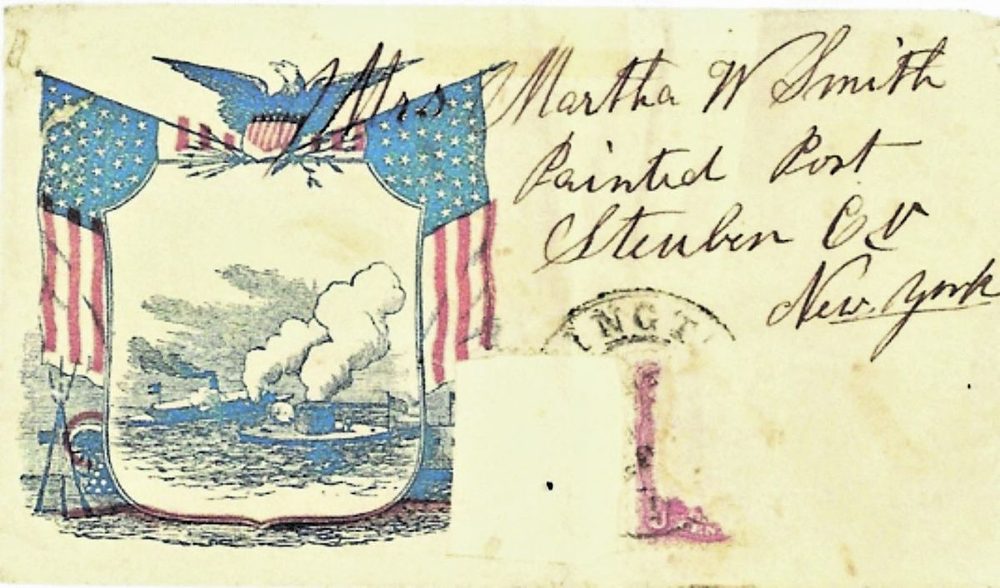 Mrs Martha W Smith
Painted Post
Steuben Co
New. York
INGT